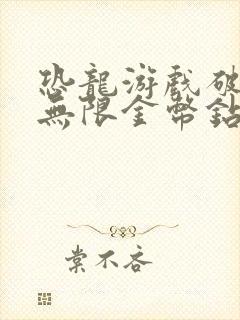 恐龍游戲破
無限金幣鉆
棠不吝